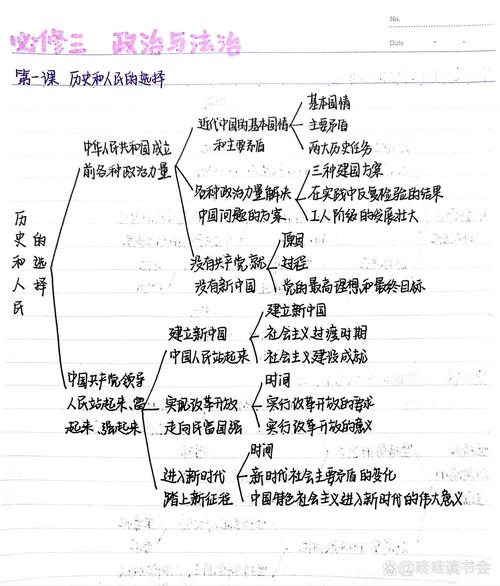 No.
Date
必修三 政治与法治
第一课 历史和人民的选择
历史和人民的选择
中华人民共和国成立
前各种政治力量
近代中国的基本国情
和主要矛盾
基本国情
主要矛盾
两大历史任务
各种政治力量解决
中国问题的方案
三种建国方案
在实践中反复检验的结果
工人阶级的发展壮大
没有共产党就
没有新中国
原因
过程
党的最高理想和最终目标
中国共产党领导
人民站起来、富
起来、强起来
建立新中国
中国人民站起来
建立新中国
社会主义过渡时期
社会主义建设成就
实现改革开放
走向民富国强
时间
实行改革开放的需求
实行改革开放的意义
进入新时代
踏上新征程
时间
新时代社会主要矛盾的变化
中国特色社会主义进入新时代的伟大意义
@眯眯读书会